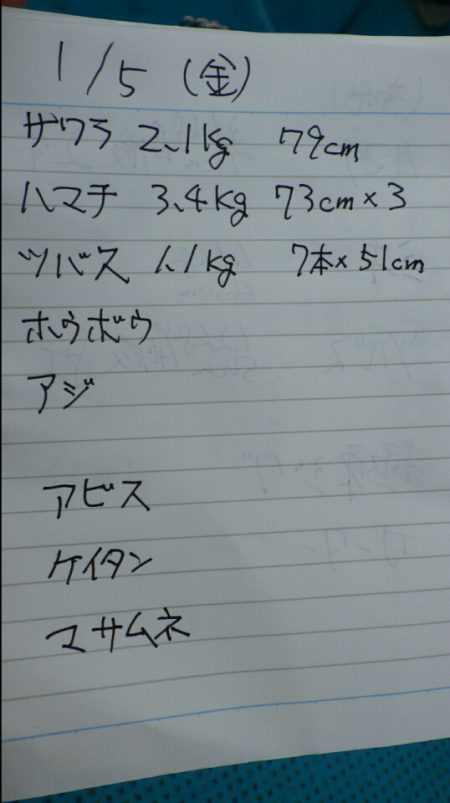 1/5 (金)
サワラ 2.1kg 79cm
ハマチ 3.4kg 73cm×3
ツバス 1.1kg 7本×51cm
ホウボウ
アジ
アビス
ケイタン
マサムネ